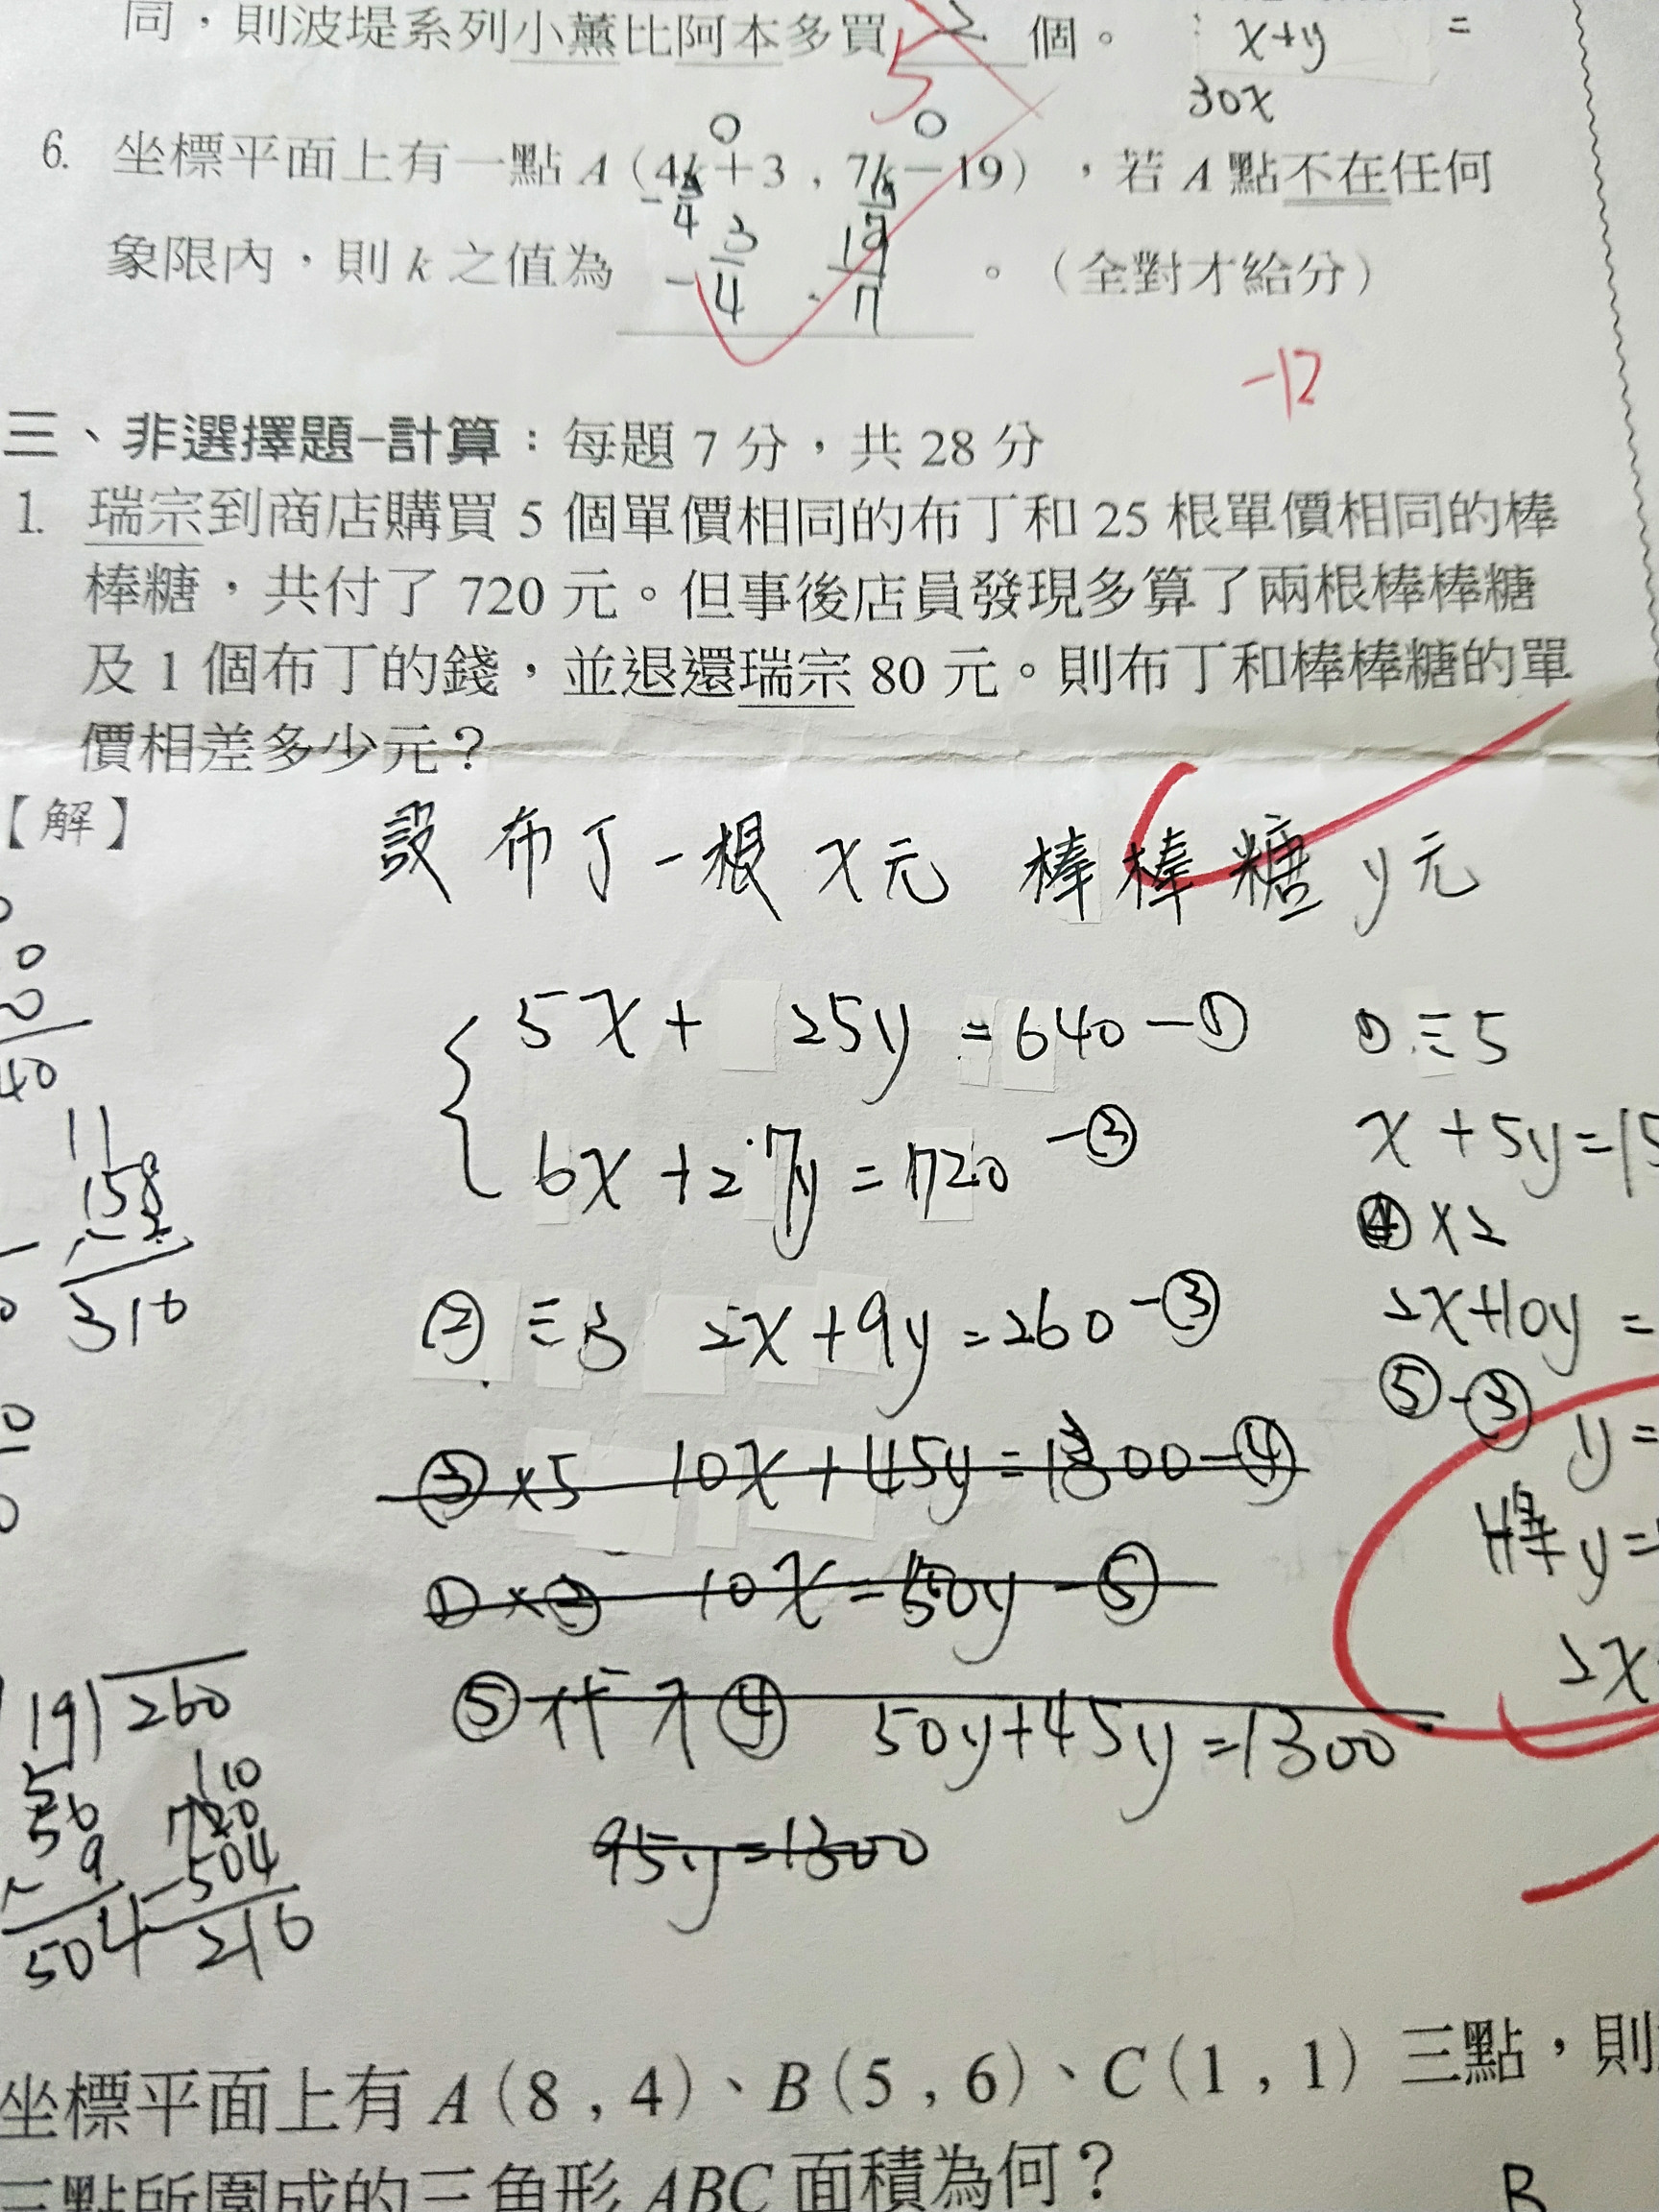 同,則波堤系列小薰比阿本多買 2 個。
5
x+y =
30x
0 0
6. 坐標平面上有一點 A(4k+3,7k-19),若 A 點不在任何
象限內,則 k 之值為 -3/4 、 19/7 。(全對才給分)
-12
三、非選擇題-計算:每題 7 分,共 28 分
1. 瑞宗到商店購買 5 個單價相同的布丁和 25 根單價相同的棒
棒糖,共付了 720 元。但事後店員發現多算了兩根棒棒糖
及 1 個布丁的錢,並退還瑞宗 80 元。則布丁和棒棒糖的單
價相差多少元?
【解】
設布丁一根 x元 棒棒糖 y元
5x+ 25y =640-①
6x+27y=720-②
②÷3 2x+9y=260-③
③×5 10x+45y=1300-④
①×② 10x=50y-⑤
⑤代入④ 50y+45y=1300
95y=1300
①÷5
x+5y=15
④×2
2x+10y=
⑤-③ y=
將y=
2x
40
158
2
316
10
19 260
56
9
504
720
-504
216
坐標平面上有 A(8,4)、B(5,6)、C(1,1)三點,則
三點所圍成的三角形 ABC 面積為何?
B